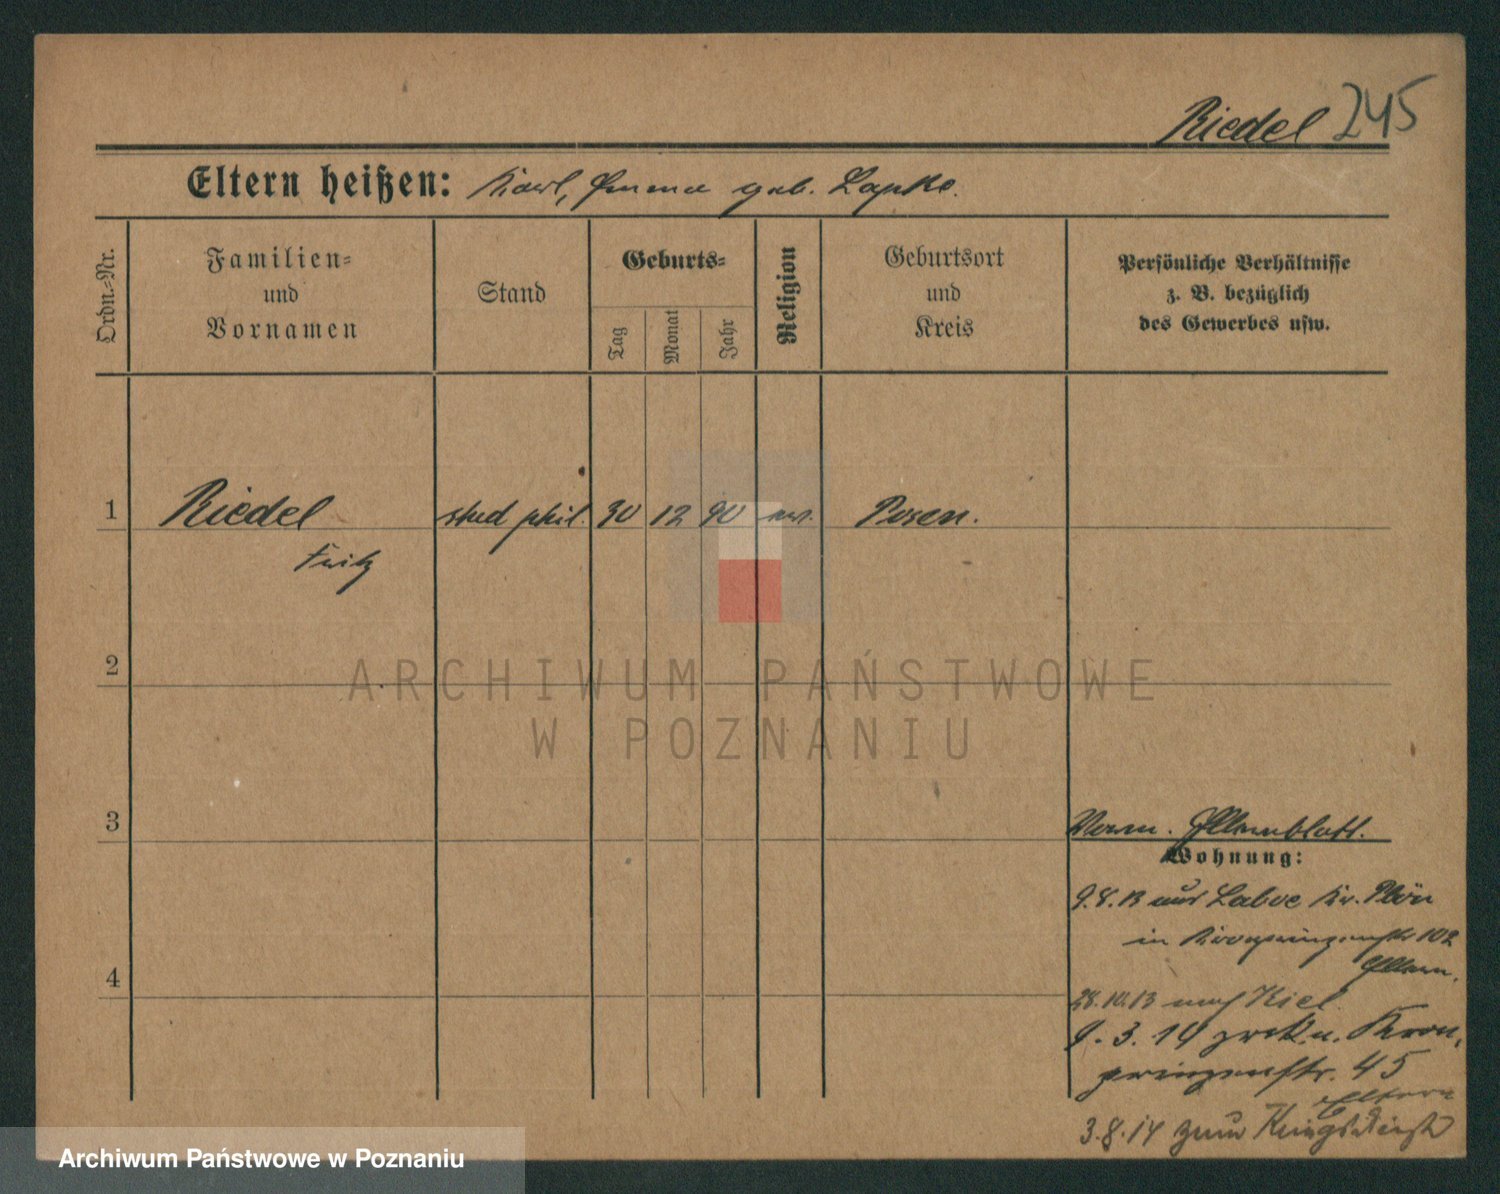 Riedel 245
Eltern heißen: Karl, Emma geb. Lapke.
Ordn.-Nr.
Familien-
und
Vornamen
Stand
Geburts-
Tag
Monat
Jahr
Religion
Geburtsort
und
Kreis
Persönliche Verhältnisse
z. B. bezüglich
des Gewerbes usw.
1 Riedel stud phil. 30 12 90 ev. Posen.
Fritz
2
3
Elternblatt.
Wohnung:
9.8.13 aus Laboe Kr. Plön
in Kronprinzenstr 102
Eltern.
28.10.13 nach Kiel
4
9.3.14 zrck. u. Kron-
prinzenstr. 45
Eltern
3.8.14 zum Kriegsdienst
ARCHIWUM PAŃSTWOWE
W POZNANIU
Archiwum Państwowe w Poznaniu